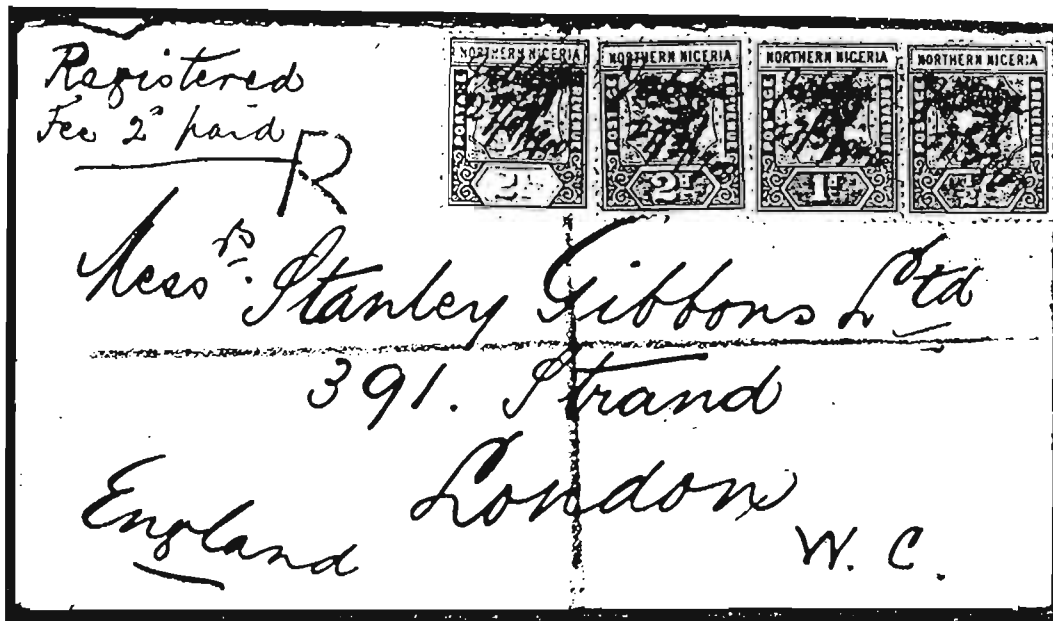 Registered
Fee 2d paid
R
NORTHERN NIGERIA
NORTHERN NIGERIA
NORTHERN NIGERIA
NORTHERN NIGERIA
2d
2d
1d
Messrs. Stanley Gibbons Ltd
391. Strand
London
W. C.
England